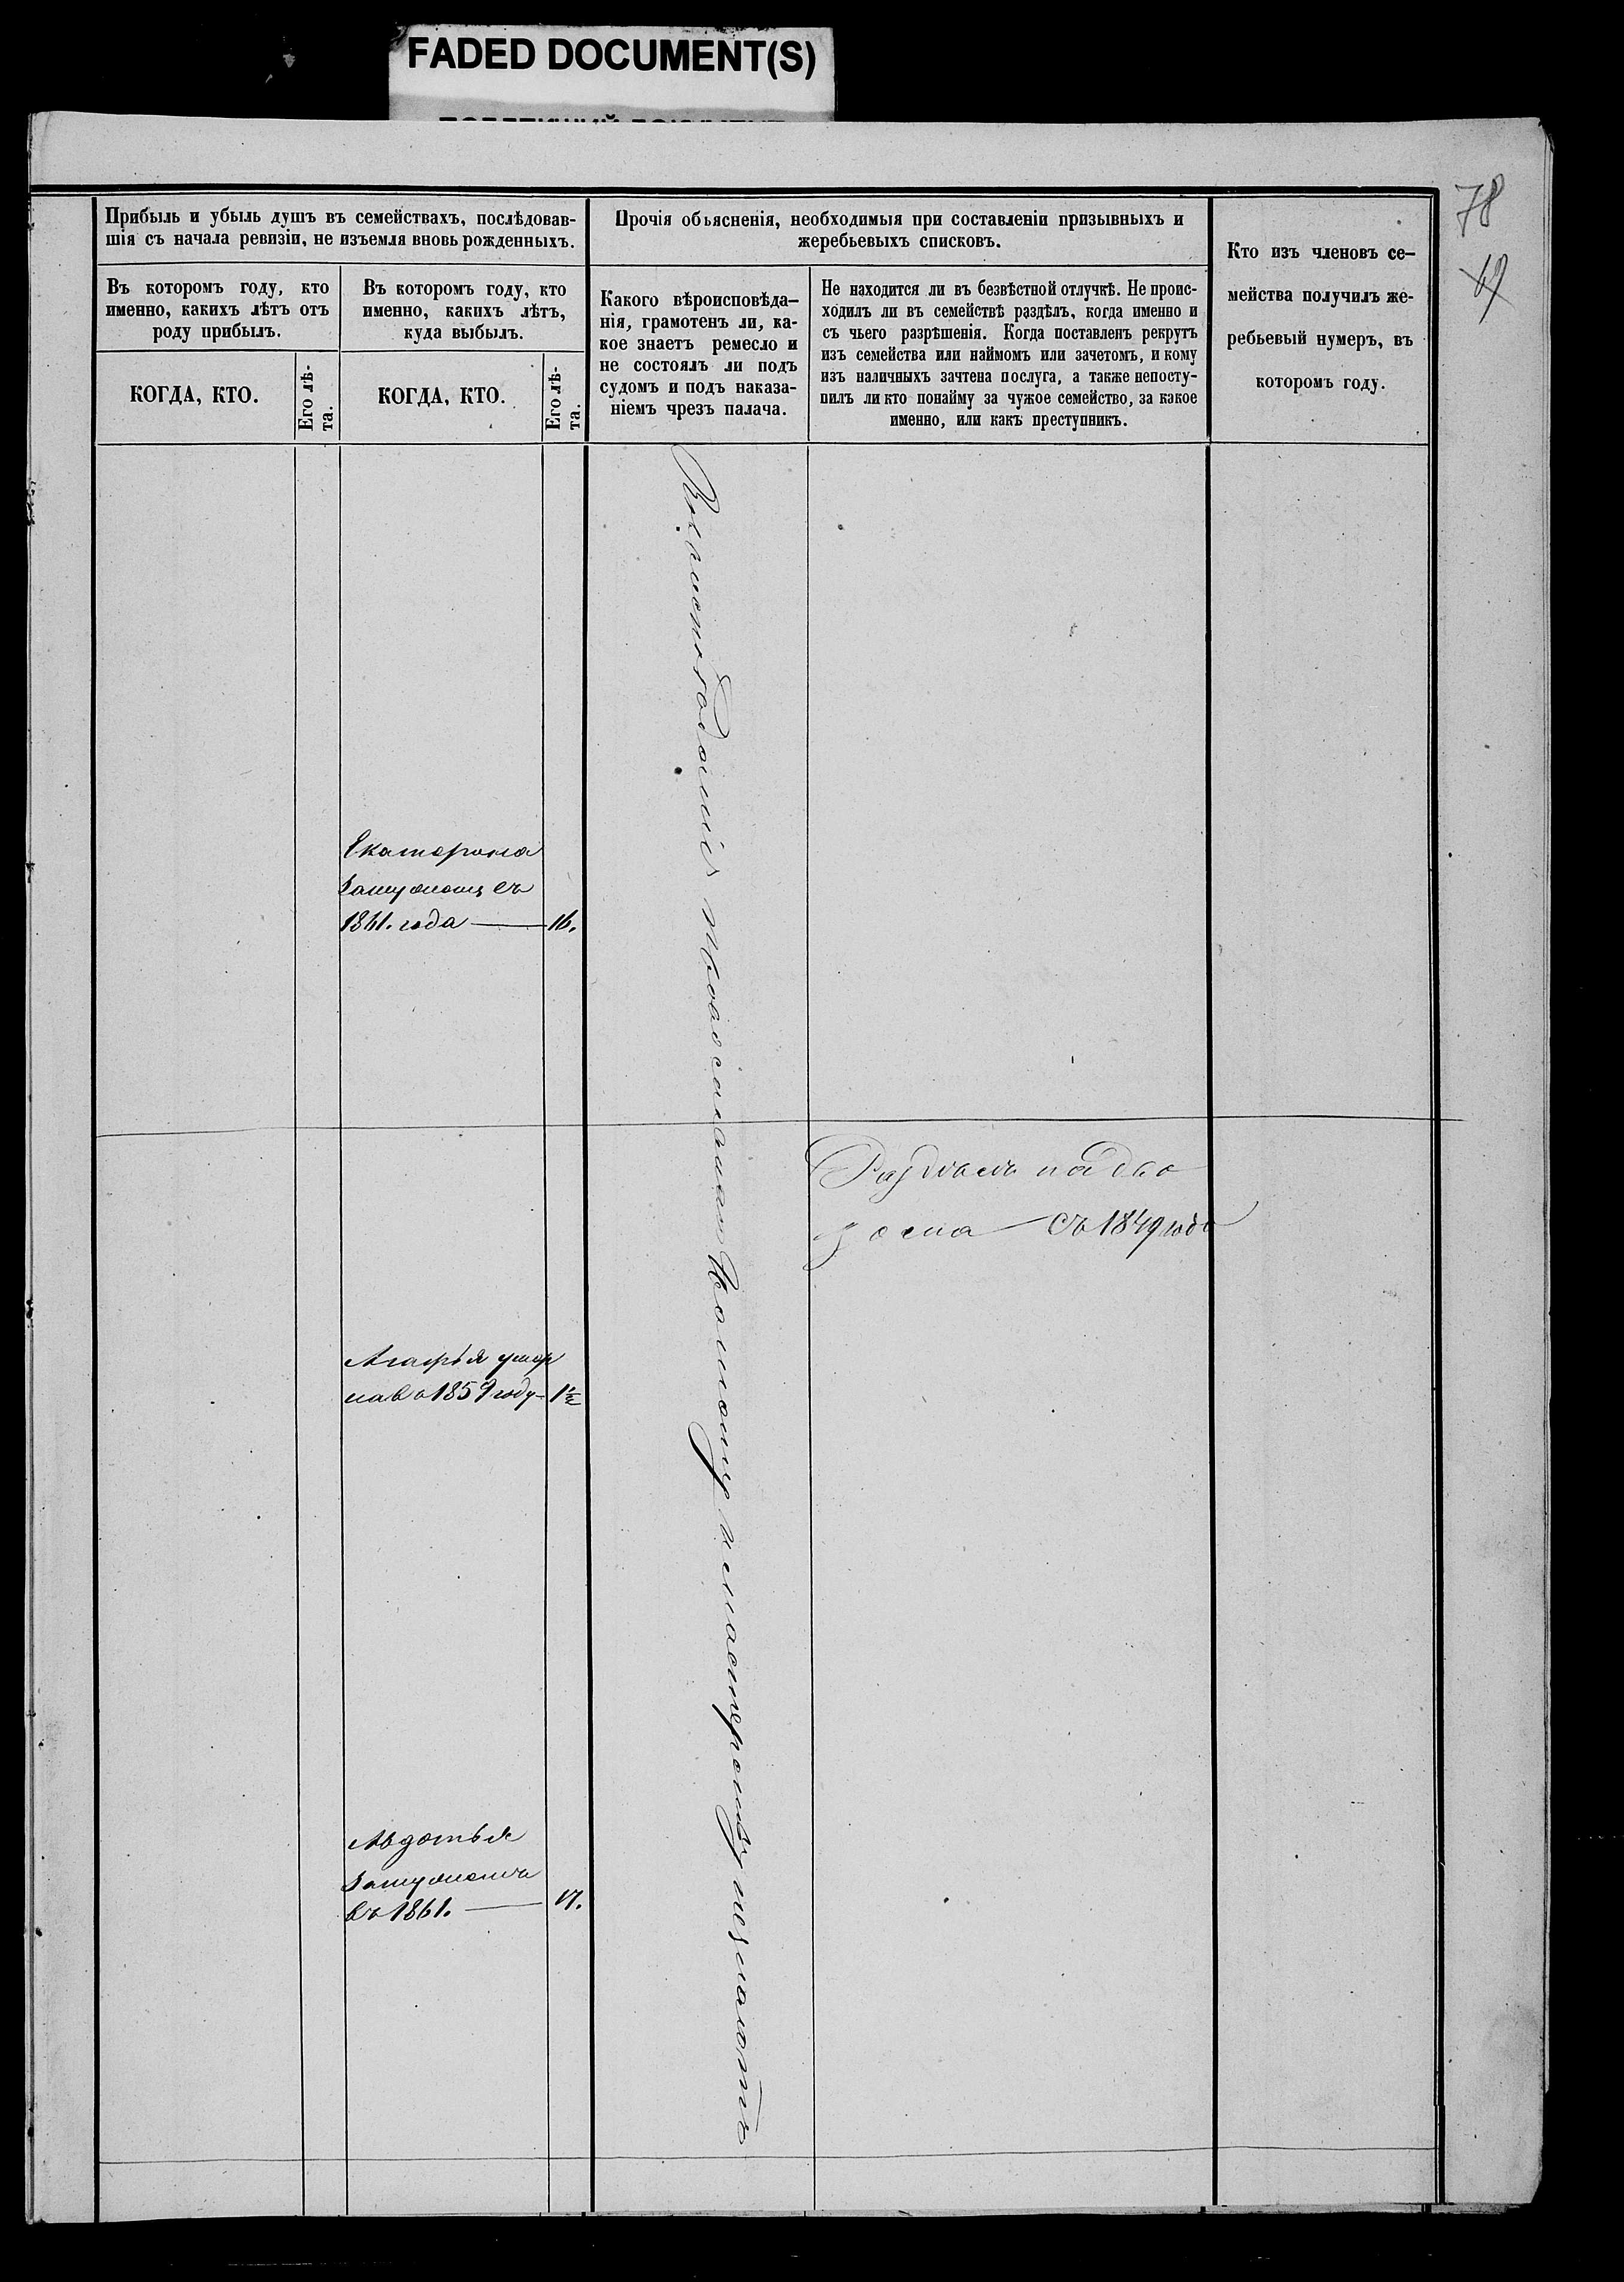 FADED DOCUMENT(S)
78
69
Прибыль и убыль душъ въ семействахъ, послѣдовав-
шія съ начала ревизіи, не изъемля вновь рожденныхъ.
Въ которомъ году, кто
именно, какихъ лѣтъ отъ
роду прибылъ.
КОГДА, КТО.
Его лѣ-
та.
Въ которомъ году, кто
именно, какихъ лѣтъ,
куда выбылъ.
КОГДА, КТО.
Его лѣ-
та.
Прочія объясненія, необходимыя при составленіи призывныхъ и
жеребьевыхъ списковъ.
Какого вѣроисповѣда-
нія, грамотенъ ли, ка-
кое знаетъ ремесло и
не состоялъ ли подъ
судомъ и подъ наказа-
ніемъ чрезъ палача.
Не находится ли въ безвѣстной отлучкѣ. Не проис-
ходилъ ли въ семействѣ раздѣлъ, когда именно и
съ чьего разрѣшенія. Когда поставленъ рекрутъ
изъ семейства или наймомъ или зачетомъ, и кому
изъ наличныхъ зачтена послуга, а также непосту-
пилъ ли кто понайму за чужое семейство, за какое
именно, или какъ преступникъ.
Кто изъ членовъ се-
мейства получилъ же-
ребьевый нумеръ, въ
которомъ году.
Екатерина
замужемъ съ
1861. года — 16.
Раздѣлъ на два
съ 1849 года
Агафья умер
ла въ 1859 году - 1½
Авдотья
замужемъ
въ 1861. — 17.
Вѣроисповѣданія православнаго грамоту и мастерству незнаютъ